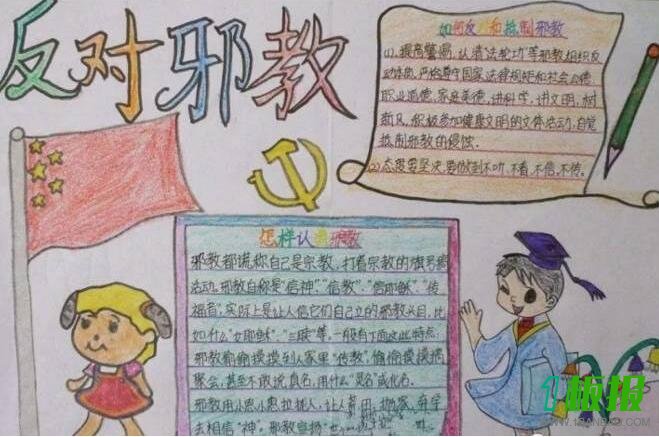 反对邪教
如何反对和抵制邪教
(1)、提高警惕,认清"法轮功"等邪教组织反
动本质,严格遵守国家法律规范和社会公德、
职业道德、家庭美德,讲科学、讲文明、树
新风,积极参加健康文明的文体活动,自觉
抵制邪教的侵蚀.
(2)态度要坚决,要做到不听、不看、不信、不传。
怎样认 邪教
邪教都谎称自己是宗教,打着宗教的旗号搞
活动。邪教自称是"信神"、"信教"、"信耶稣"、"传
福音",实际上是让人信它们自己立的邪教头目,比
如什么"女耶稣"、"三赎"等,一般有下面这些特点:
邪教偷偷摸摸到人家里"传教",偷偷摸摸搞
聚会,甚至不敢说真名,用什么"灵名"或化名。
邪教用小恩小惠拉拢人,让人
去相信"神",邪教宣扬
板报